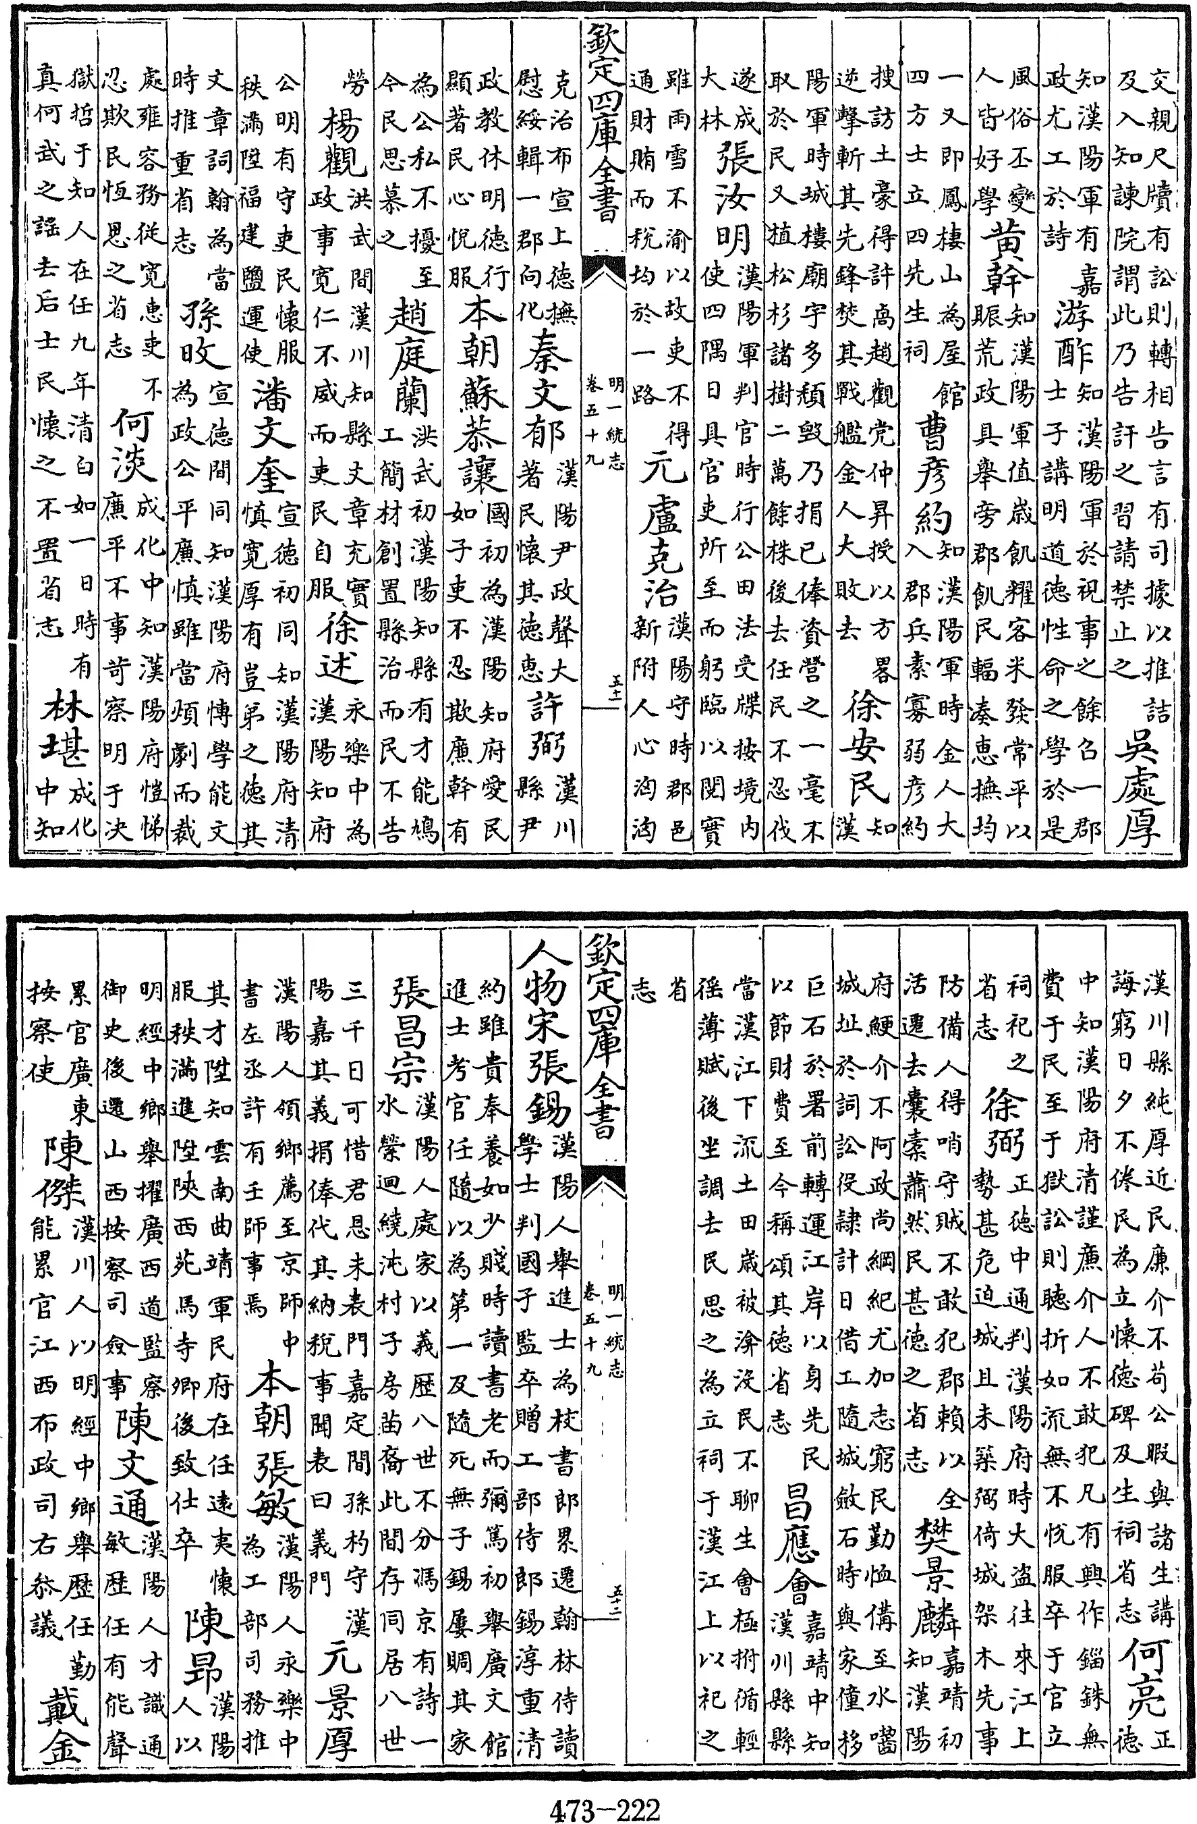 交親尺牘有訟則轉相告言有司據以推詰
及入知諫院謂此乃告訐之習請禁止之
吳處厚
知漢陽軍有嘉
政尤工於詩
游酢
知漢陽軍於視事之餘召一郡
士子講明道德性命之學於是
風俗丕變
人皆好學
黄幹
知漢陽軍值歲飢糴客米發常平以
賑荒政具舉旁郡飢民輻湊惠撫均
一又即鳳棲山為屋館
四方士立四先生祠
曹彥約
知漢陽軍時金人大
入郡兵素寡弱彥約
搜訪土豪得許卨趙觀党仲昇授以方畧
逆擊斬其先鋒焚其戰艦金人大敗去
徐安民
知
漢
陽軍時城樓廟宇多頽毁乃捐已俸資營之一毫不
取於民又植松杉諸樹二萬餘株後去任民不忍伐
遂成
大林
張汝明
漢陽軍判官時行公田法受牒按境内
使四隅日具官吏所至而躬臨以閲實
雖雨雪不渝以故吏不得
通財賄而稅均於一路
元盧克治
漢陽守時郡邑
新附人心洶洶
欽定四庫全書
明一統志
卷五十九
五十一
克治布宣上德撫
慰綏輯一郡向化
秦文郁
漢陽尹政聲大
著民懷其德惠
許弼
漢川
縣尹
政教休明德行
顯著民心悅服
本朝蘇恭讓
國初為漢陽知府愛民
如子吏不忍欺廉幹有
為公私不擾至
今民思慕之
趙庭蘭
洪武初漢陽知縣有才能鳩
工簡材創置縣治而民不告
勞
楊觀
洪武間漢川知縣文章充實
政事寬仁不威而吏民自服
徐述
永樂中為
漢陽知府
公明有守吏民懷服
秩滿陞福建鹽運使
潘文奎
宣德初同知漢陽府清
慎寬厚有豈弟之德其
文章詞翰為當
時推重省志
孫旼
宣德間同知漢陽府博學能文
為政公平廉慎雖當煩劇而裁
處雍容務從寛惠吏不
忍欺民恆思之省志
何淡
成化中知漢陽府愷悌
廉平不事苛察明于决
獄哲于知人在任九年清白如一日時有
真何武之謡去后士民懷之不置省志
林堪
成化
中知
漢川縣純厚近民廉介不苟公暇與諸生講
誨窮日夕不倦民為立懷德碑及生祠省志
何亮
正
德
中知漢陽府清謹廉介人不敢犯凡有興作錙銖無
費于民至于獄訟則聽折如流無不悅服卒于官立
祠祀之
省志
徐弼
正德中通判漢陽府時大盜往來江上
勢甚危迫城且未築弼倚城架木先事
防備人得哨守賊不敢犯郡賴以全
活遷去囊橐蕭然民甚德之省志
樊景麟
嘉靖初
知漢陽
府鯁介不阿政尚綱紀尤加志窮民勤恤備至水嚙
城址於詞訟役隷計日借工隨城斂石時與家僮移
巨石於署前轉運江岸以身先民
以節財費至今稱頌其德省志
昌應會
嘉靖中知
漢川縣縣
當漢江下流土田歲被渰没民不聊生會極拊循輕
徭薄賦後坐調去民思之為立祠于漢江上以祀之
省
志
欽定四庫全書
明一統志
卷五十九
五十二
人物宋張錫
漢陽人舉進士為校書郎累遷翰林侍讀
學士判國子監卒贈工部侍郎錫淳重清
約雖貴奉養如少賤時讀書老而彌篤初舉廣文館
進士考官任隨以為第一及隨死無子錫屢賙其家
張昌宗
漢陽人處家以義歷八世不分馮京有詩一
水縈迴繞沌村子房苗裔此間存同居八世
三千日可惜君恩未表門嘉定間孫杓守漢
陽嘉其義捐俸代其納稅事聞表曰義門
元景厚
漢陽人領鄉薦至京師中
書左丞許有壬師事焉
本朝張敏
漢陽人永樂中
為工部司務推
其才陞知雲南曲靖軍民府在任遠夷懷
服秩滿進陞陜西苑馬寺卿後致仕卒
陳昻
漢陽
人以
明經中鄉舉擢廣西道監察
御史後遷山西按察司僉事
陳文通
漢陽人才識通
敏歷任有能聲
累官廣東
按察使
陳傑
漢川人以明經中鄉舉歷任勤
能累官江西布政司右叅議
戴金
473-222